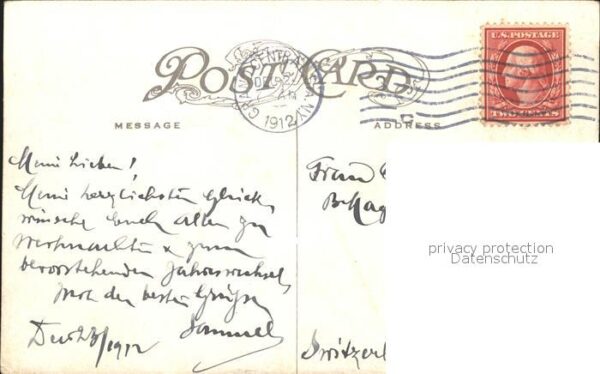 POST CARD
GRAND CENTRAL STA. N.Y.
1912
U.S. POSTAGE
TWO CENTS
MESSAGE
ADDRESS
Meine Lieben!
Meine herzlichsten Glück
wünsche Euch allen zu
Weihnachten & zum
bevorstehenden Jahreswechsel,
Mit den besten Grüßen
Samuel
Dec 23/1912
Frau
privacy protection
Datenschutz
Switzerl